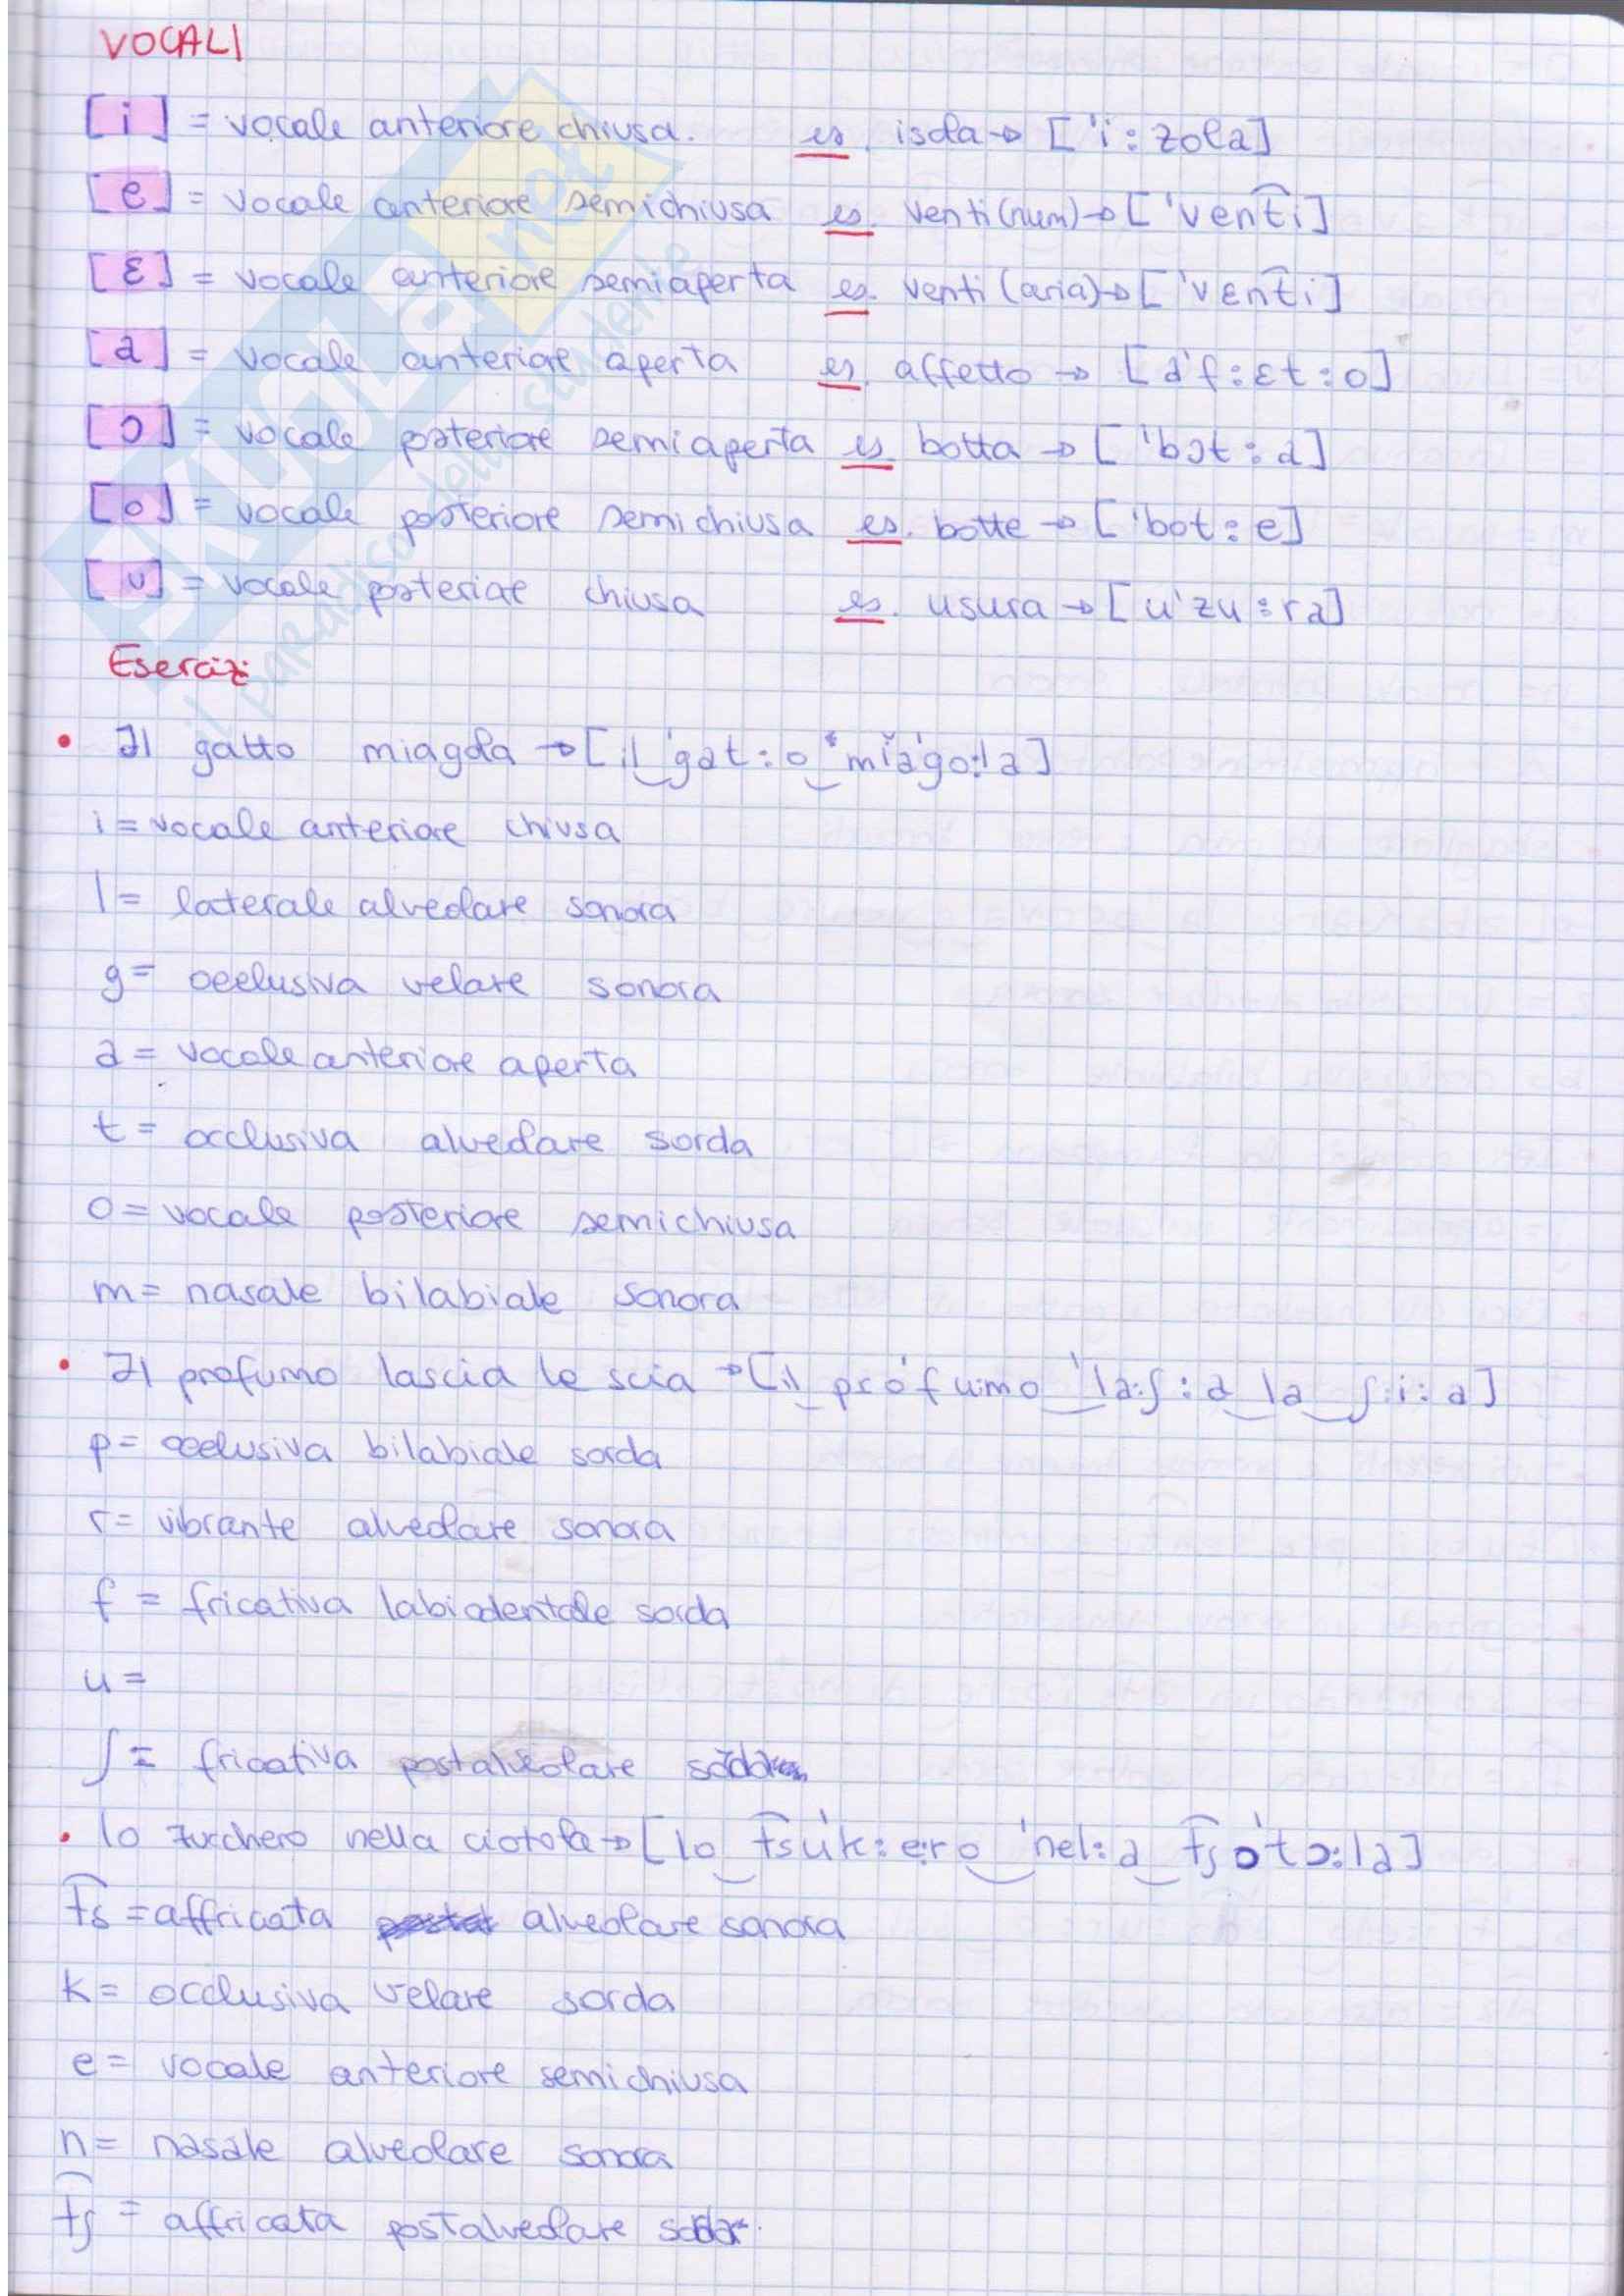 VOCALI
[i] = vocale anteriore chiusa. es. isola → ['i:zola]
[e] = vocale anteriore semichiusa es. venti (num) → ['ven͡ti]
[ɛ] = vocale anteriore semiaperta es. venti (aria) → ['vɛn͡ti]
[a] = vocale anteriore aperta es. affetto → [a'f:ɛt:o]
[ɔ] = vocale posteriore semiaperta es. botta → ['bɔt:a]
[o] = vocale posteriore semichiusa es. botte → ['bot:e]
[u] = vocale posteriore chiusa es. usura → [u'zu:ra]
Esercizi
• Il gatto miagola → [il‿'gat:o‿'mia'go:la]
i = vocale anteriore chiusa
l = laterale alveolare sonora
g = occlusiva velare sonora
a = vocale anteriore aperta
t = occlusiva alveolare sorda
o = vocale posteriore semichiusa
m = nasale bilabiale sonora
• Il profumo lascia la scia → [il‿pro'fu:mo‿'la:ʃ:a‿la‿ʃ:i:a]
p = occlusiva bilabiale sorda
r = vibrante alveolare sonora
f = fricativa labiodentale sorda
u =
ʃ = fricativa postalveolare sorda
• lo zucchero nella ciotola → [lo‿t͡su'k:e:ro‿'nel:a‿t͡ʃo'tɔ:la]
t͡s = affricata alveolare sonora
k = occlusiva velare sorda
e = vocale anteriore semichiusa
n = nasale alveolare sonora
t͡ʃ = affricata postalveolare sorda
SKUOLA.net
il paradiso dello studente